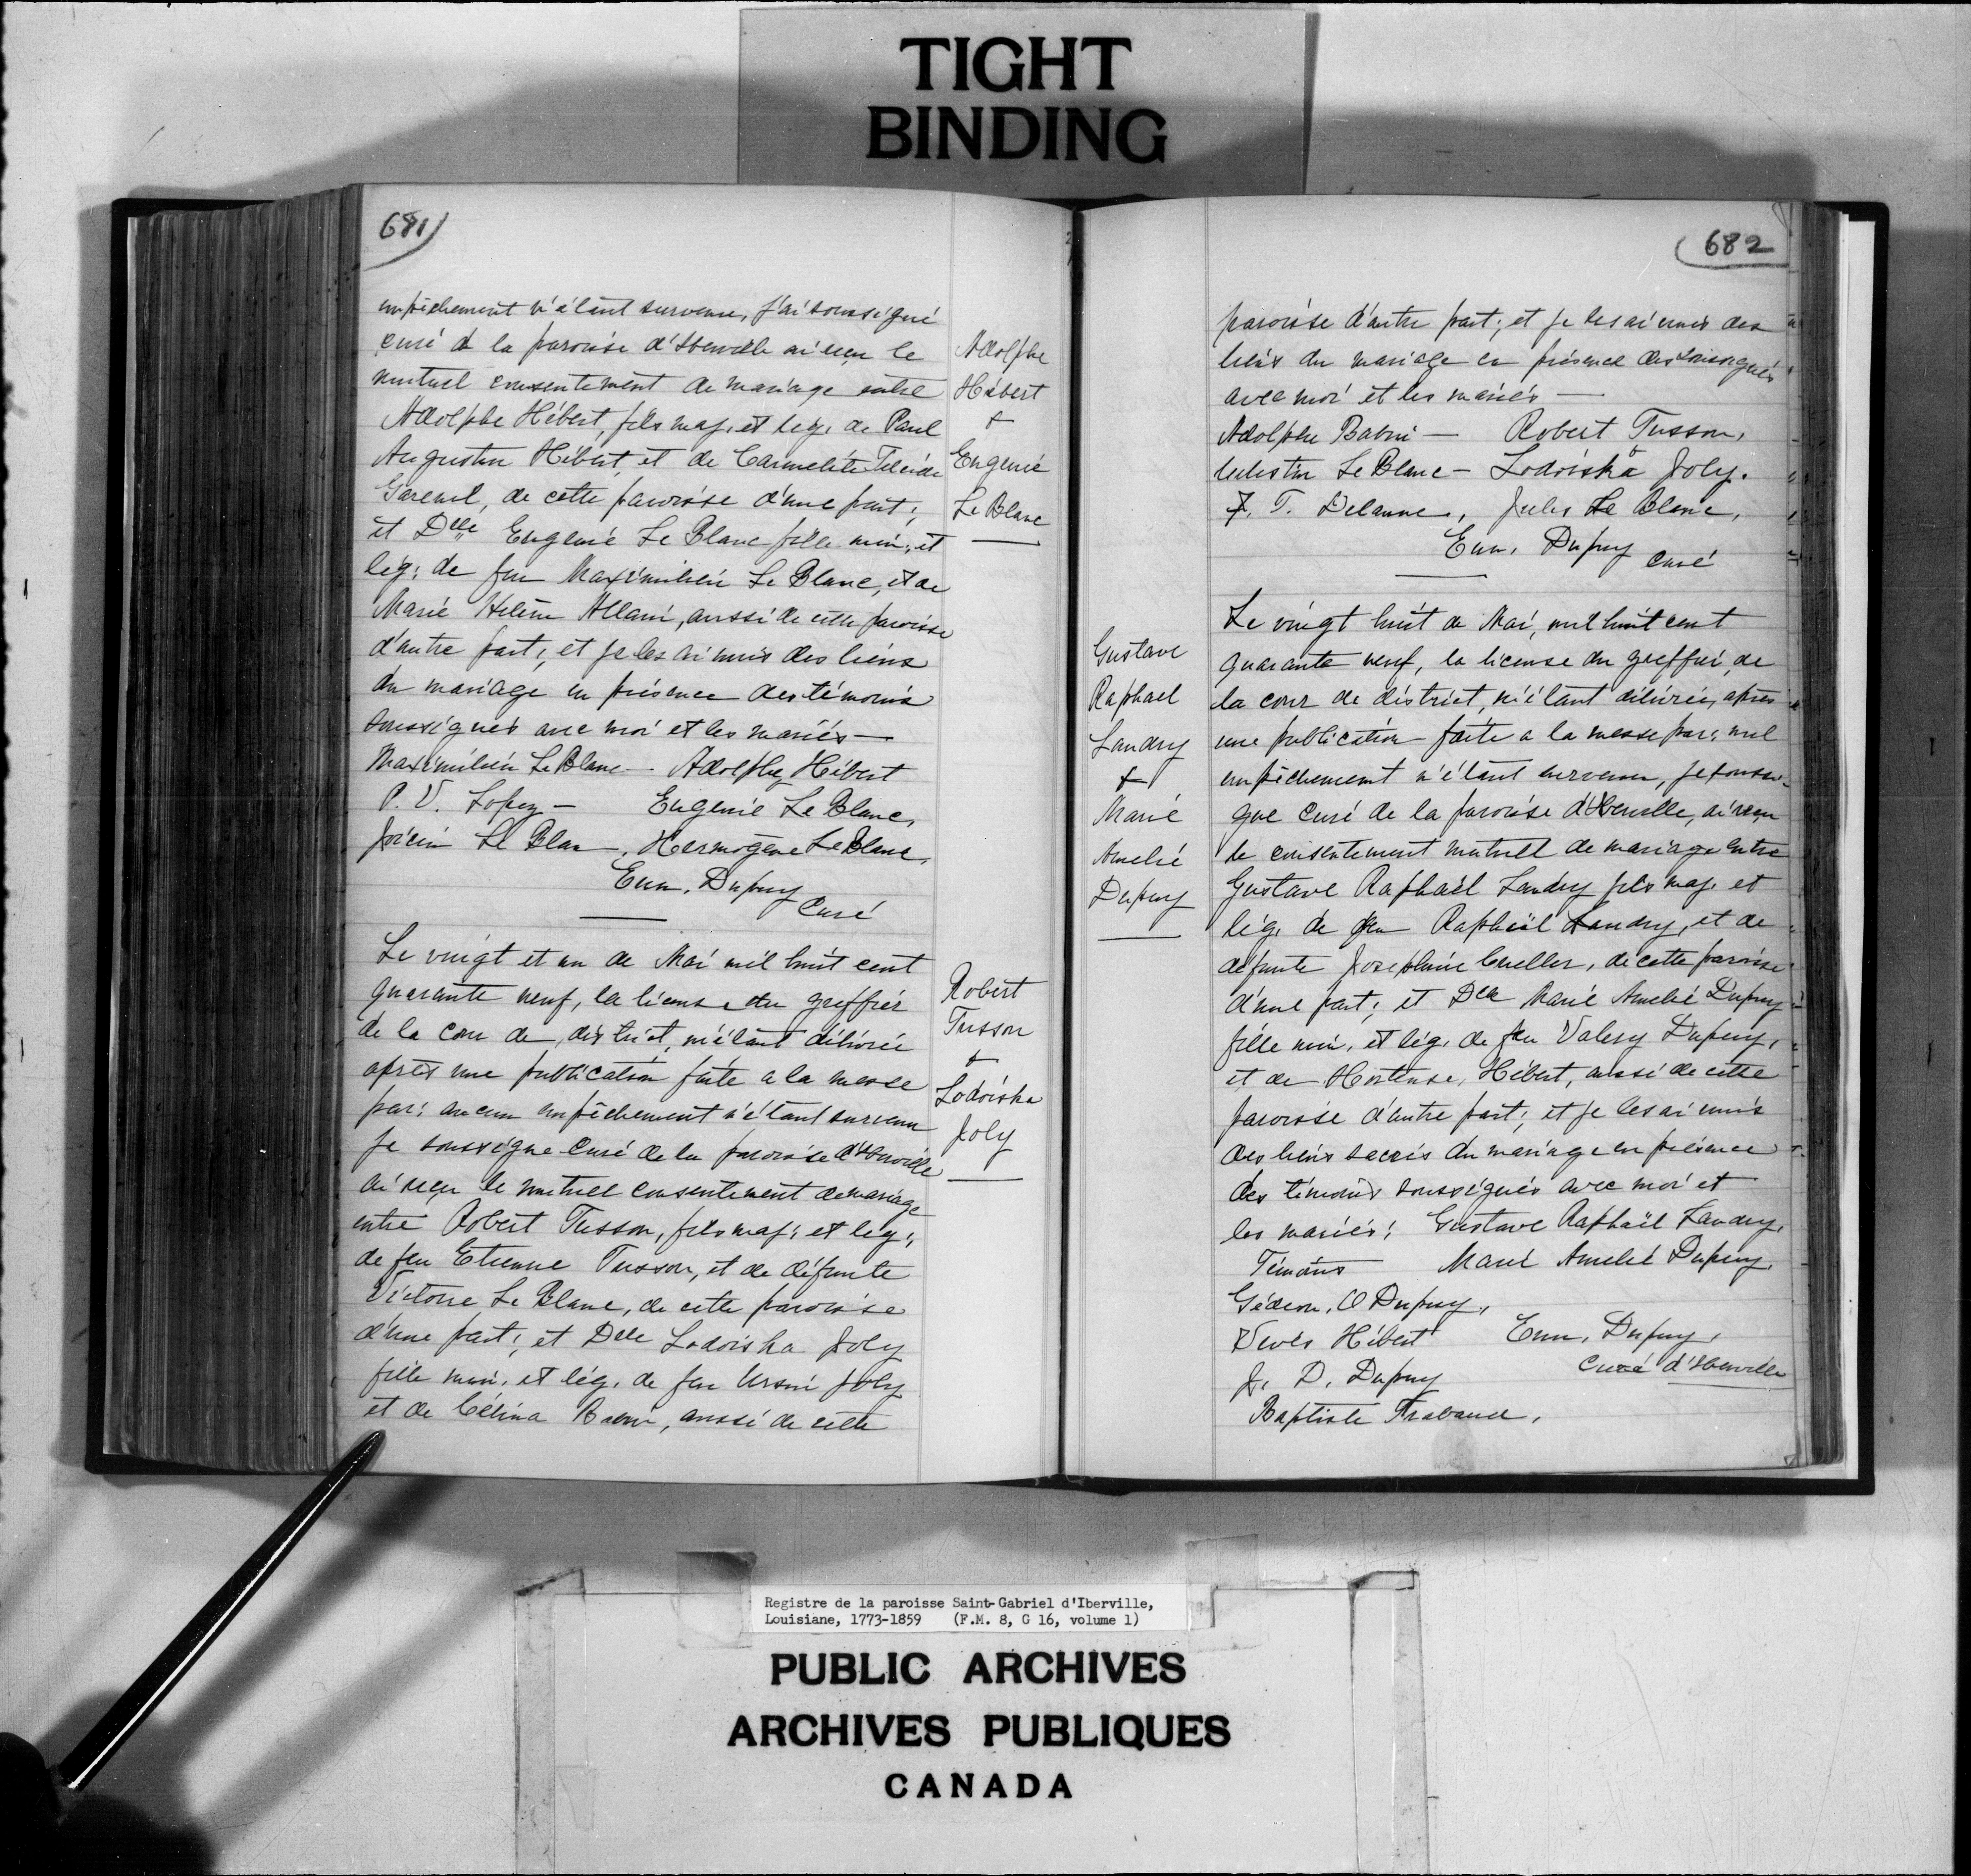 TIGHT
BINDING
681
empêchement n'étant survenu, j'ai soussigné
curé de la paroisse d'Iberville ai reçu le
mutuel consentement de mariage entre
Adolphe Hébert, fils maj. et lég. de Paul
Augustin Hébert et de Carmelite
de cette paroisse d'une part;
et Dlle Eugenie Le Blanc fille min. et
lég. de feu Maximilien Le Blanc, et de
Marie Helène Allain, aussi de cette paroisse
d'autre part, et je les ai unis des liens
du mariage en présence des témoins
soussignés avec moi et les mariés —
Maximilien Le Blanc — Adolphe Hébert
P. V. Lopez — Eugenie Le Blanc,
Le Blan, Hermogène Le Blanc,
Em. Dupuy
Curé
Adolphe
Hébert
+
Eugenie
Le Blanc
Le vingt et un de Mai mil huit cent
quarante neuf, la license du greffier
de la cour de district, m'étant délivrée
après une publication faite a la messe
par: aucun empêchement n'étant survenu
je soussigne curé de la paroisse d'Iberville
ai reçu le mutuel consentement de mariage
entre Robert Tusson, fils maj: et lég:,
de feu Etienne Tusson, et de défunte
Victoire Le Blanc, de cette paroisse
d'une part; et Dlle Lodoiska Joly
fille min. et lég. de feu Ursin Joly
et de Célina Babin, aussi de cette
Robert
Tusson
+
Lodoiska
Joly
682
paroisse d'autre part; et je les ai unis des
liens du mariage en présence des soussignés
avec moi et les mariés —
Adolphe Babin — Robert Tusson,
Celestin Le Blanc — Lodoiska Joly.
F. T. Delaune, Jules Le Blanc,
Em. Dupuy
Curé
Le vingt huit de Mai, mil huit cent
quarante neuf, la license du greffier de
la cour de district, m'étant délivrée, après
une publication faite a la messe par: nul
empêchement n'étant survenu, je soussi-
gne Curé de la paroisse d'Iberville, ai reçu
le consentement mutuel de mariage entre
Gustave Raphaël Landry fils maj. et
lég. de feu Raphaël Landry, et de
défunte Josephine Cueller, de cette paroisse
d'une part; et Dlle Marie Amelie Dupuy
fille min. et lég. de feu Valery Dupuy,
et de Hortense Hébert, aussi de cette
paroisse d'autre part; et je les ai unis
des liens sacrés du mariage en présence
des témoins soussignés avec moi et
les mariés; Gustave Raphaël Landry,
Témoins Marie Amelie Dupuy,
Gédeon, O Dupuy,
Hébert Em. Dupuy,
J. D. Dupuy Curé d'Iberville
Baptiste
Gustave
Raphael
Landry
+
Marie
Amelie
Dupuy
Registre de la paroisse Saint-Gabriel d'Iberville,
Louisiane, 1773-1859 (F.M. 8, G 16, volume 1)
PUBLIC ARCHIVES
ARCHIVES PUBLIQUES
CANADA